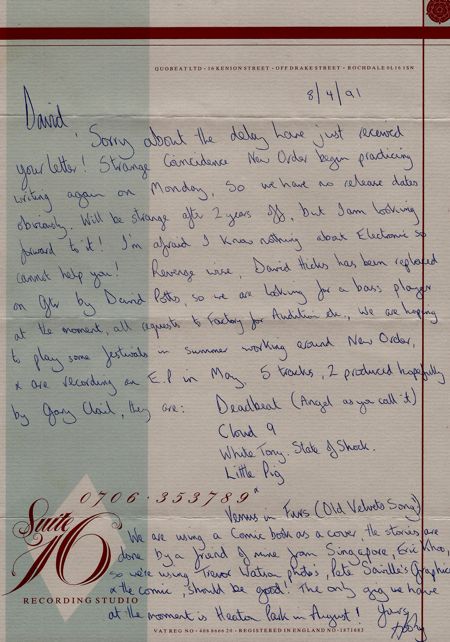 QUOBEAT LTD • 16 KENION STREET • OFF DRAKE STREET • ROCHDALE OL16 1SN
8/4/91
David,
Sorry about the delay have just received
your letter! Strange Coincidence New Order begin practicing
writing again on Monday, so we have no release dates
obviously. Will be strange after 2 years off, but I am looking
forward to it! I'm afraid I know nothing about Electronic so
cannot help you! Revenge wise, David Hicks has been replaced
on Gtr by David Potts, so we are looking for a bass player
at the moment, all requests to Factory for Audition etc, We are hoping
to play some festivals in summer working around New Order,
+ are recording an E.P in May. 5 tracks, 2 produced hopefully
by Gary Clail, they are: Deadbeat (Angel as you call it)
Cloud 9
White Tory. State of Shock.
Little Pig
0706·353789
Venus in Furs (Old Velvets Song)
Suite 16
RECORDING STUDIO
We are using a Comic book as a cover, the stories are
done by a friend of mine from Singapore, Eric Khoo,
so we're using Trevor Watson photo's, Pete Saville's Graphics
+ the comic, should be good! The only gig we have
at the moment is Heaton Park in August! Yours
VAT REG NO • 408 8666 20 • REGISTERED IN ENGLAND NO • 1871683